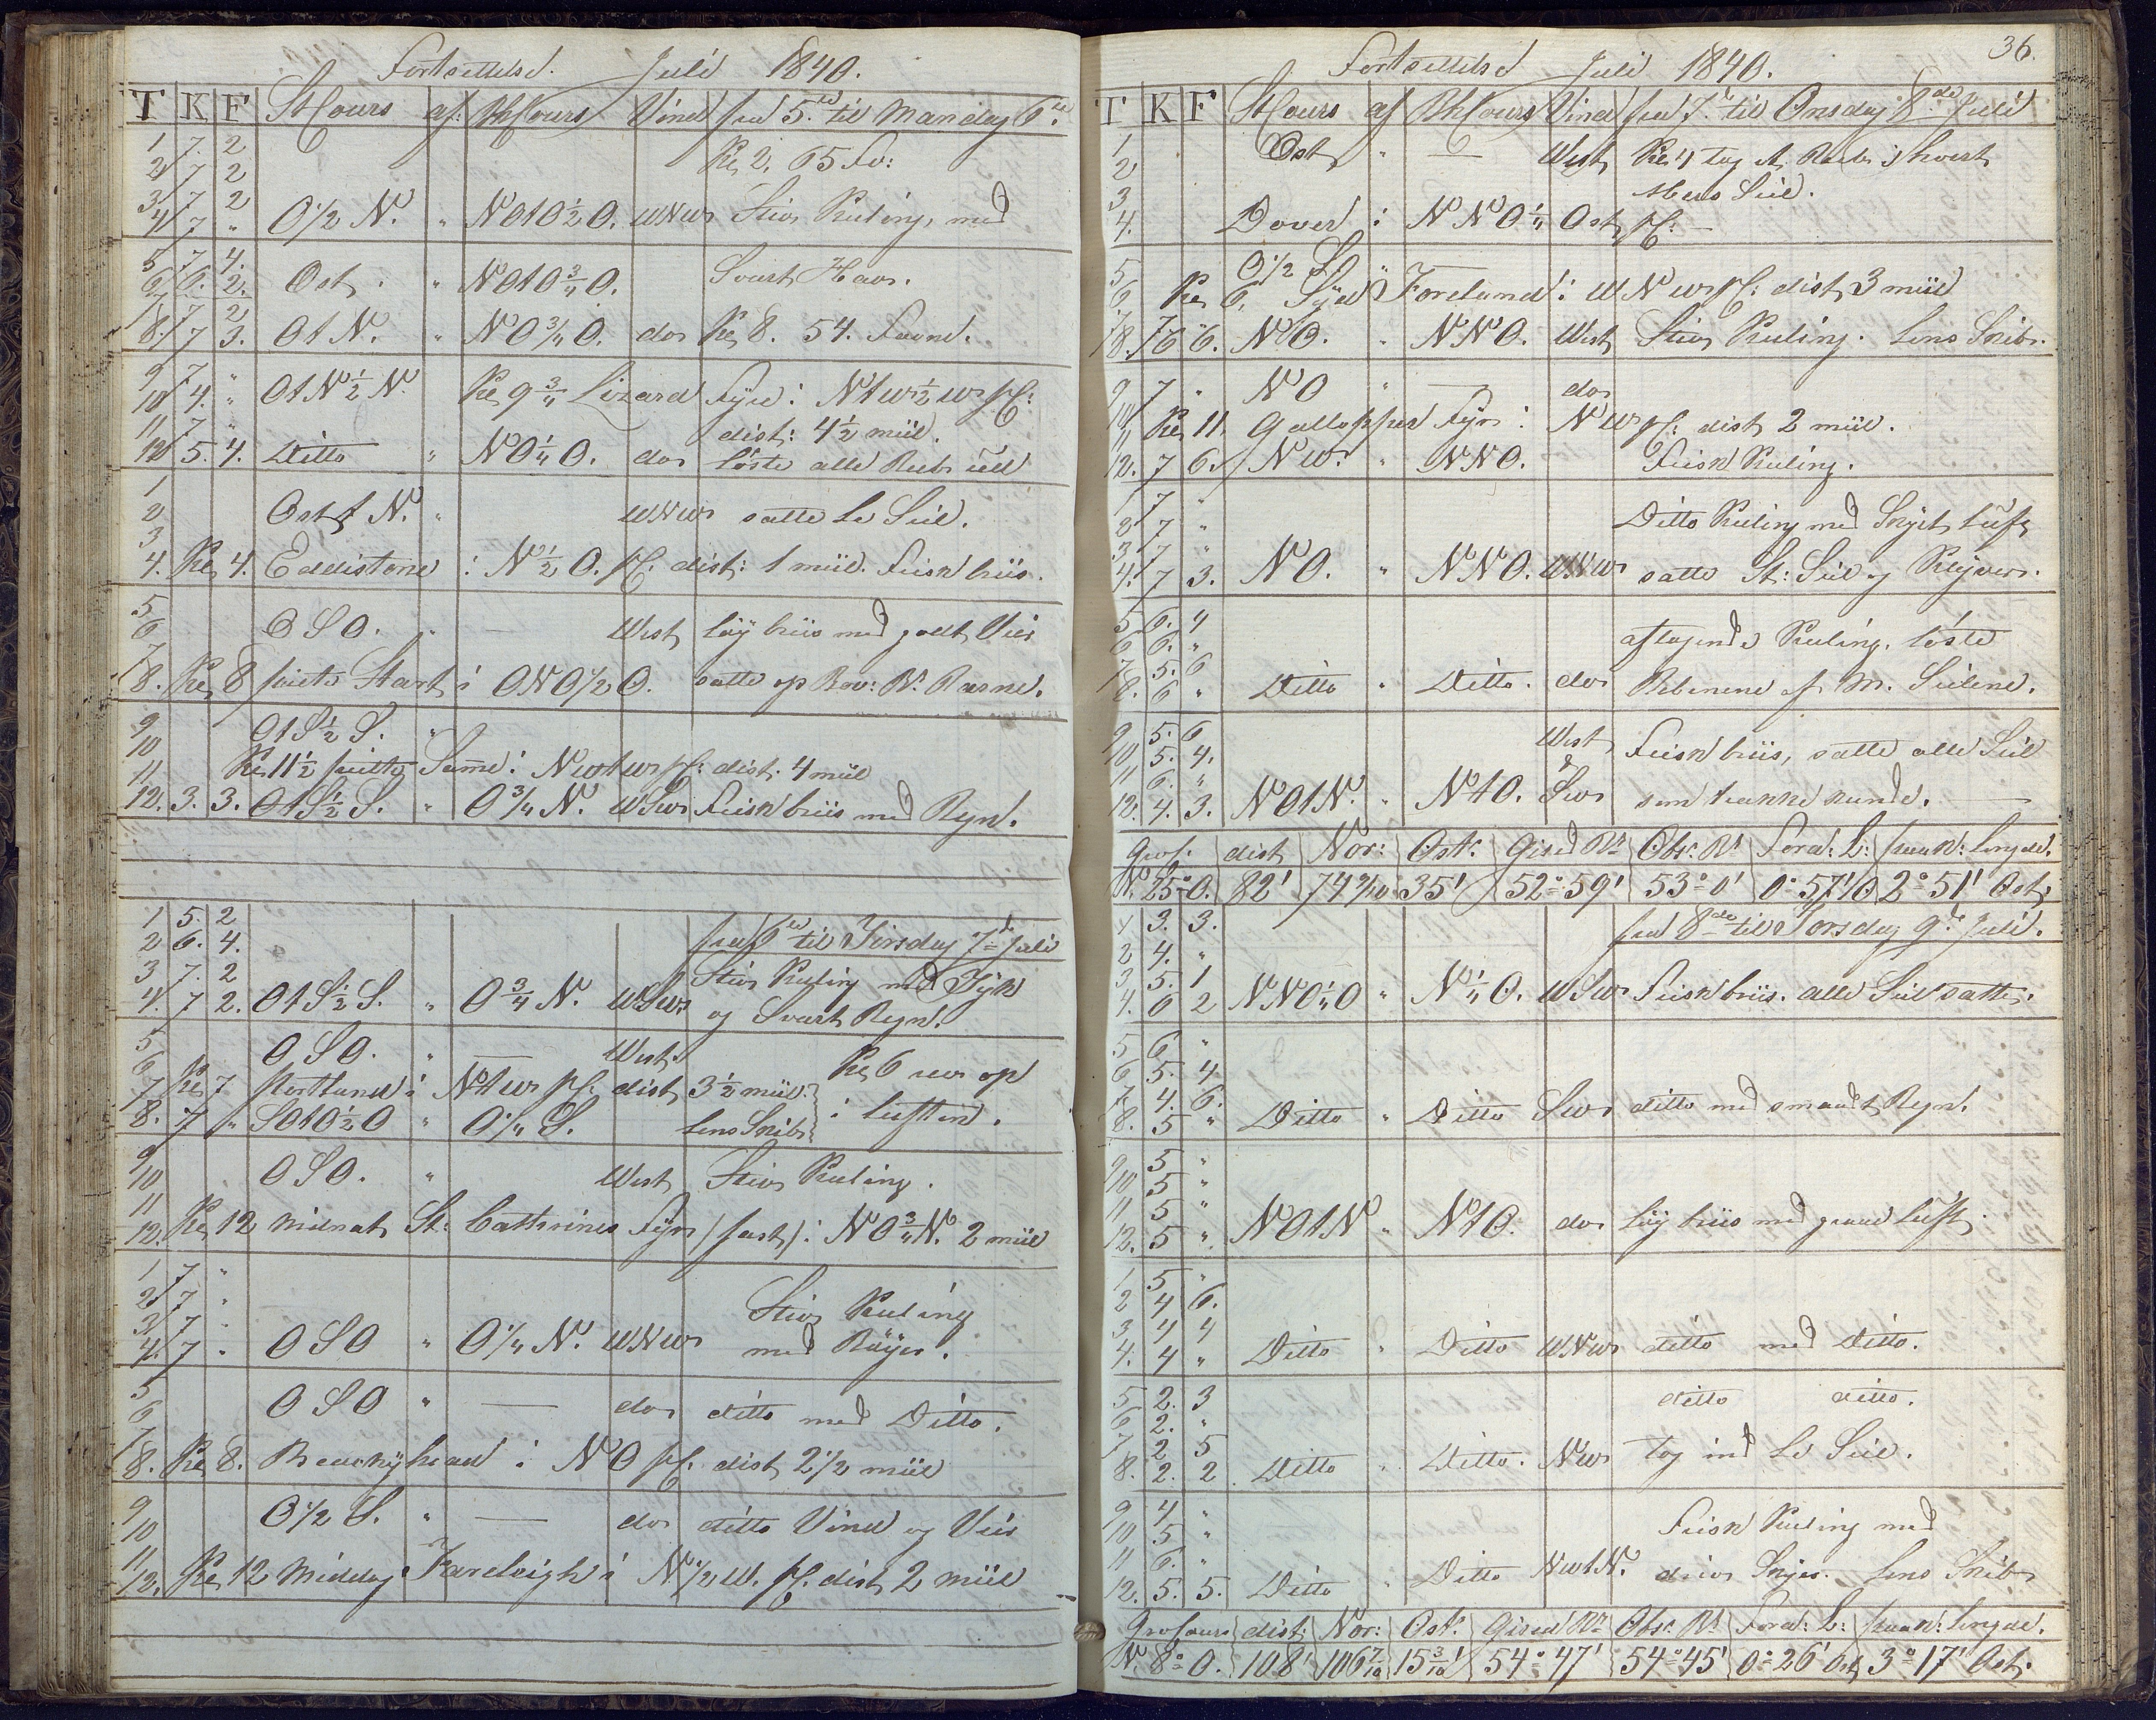 Fortsættelse. Juli 1840.
T K F StCours af: BhCours Vind fra 5te til Mandag 6te
1 7 2 Kl 2. 65 Fv:
2 7 2
3 7 2
4 7 " O 1/2 N. " NOtO 1/2 O. WNW Stiv Kuling, med
5 7 4. Svart Hav.
6 6. 2. Ost. " NOtO 3/4 O.
7 7 2
8. 7 3. OtN. " NO 3/4 O. do Kl 8. 54. Favne.
9 7 "
10 4. " OtN 1/2 N. Kl 9 3/4 Lizard Fyr i NtW 1/2 W pC:
11 7 " dist: 4 1/2 miil.
12 5. 4. Ditto " NO 1/4 O. do löste alle Reeb ud
1
2 OsttN. " WNW satte Le Seil.
3
4. Kl 4. Eddistone i N 1/2 O. pC. dist: 1 miil. Frisk briis.
5
6 OSO. " — West löy briis med godt Veir
7
8. Kl 8 peilte Start i ONO 1/2 O. satte op Bov: Br. Raerne.
9 OtS 1/2 S. "
10
11 Kl 11 1/2 peilte Samme i NWtW pC: dist. 4 miil
12. 3. 3. OtS 1/2 S. " O 3/4 N. WSW Frisk briis med Regn.
1 5. 2
2 6. 4. fra 6te til Tirsdag 7de Juli
3 7. 2 Stiv Kuling med Tyk
4. 7 2. OtS 1/2 S. " O 3/4 N. WSW og Svart Regn.
5 OSO. " — West.
6 Kl 6 rev op
7 Kl 7 Portland i NtW pC. dist 3 1/2 miil. i luften.
8. 7 " SOtO 1/2 O " O 1/4 S. lens Skib
9
10 OSO. " West Stiv Kuling.
11
12. Kl 12 midnat St: Cathrines Fyr (fast) i NO 3/4 N. 2 miil
1 7 "
2 7 " Stiv Kuling
3 7 "
4. 7 " OSO " O 1/4 N. WNW med Böyer.
5
6 OSO " — do ditto med Ditto.
7
8. Kl 8. Beachyhead i NO pC. dist 2 1/2 miil
9 O 1/2 S. " — do ditto Vind og Veir
10
11
12. Kl 12 Middag Fareleigh i N 1/2 W. pC. dist 2 miil
36.
Fortsættelse Juli 1840.
T K F StCours af BhCours Vind fra 7de til Onsdag 8de Juli
1 Ost " — West Kl 4 tog et Reeb i hvert
2
3 Mers Seil.
4. Dover i NNO 1/4 Ost pC. —
5 O 1/2 S "
6 Kl 6. Syd Foreland i WNW pC: dist 3 miil
7 7 "
8. 6 6. NO. " NNO. West Stiv Kuling. lens Skib.
9 7 " NO " — do
10
11 Kl 11. Galloper Fyr i NW pC: dist 2 miil.
12. 7 6. NW. " NNO. Frisk Kuling.
1 7 "
2 7 " Ditto Kuling med Skyet luft
3 7 "
4. 7 3. NO. " NNO. WNW satte St: Seil og Klyver.
5 6. 4
6 6. " aftagende Kuling. löste
7 5. 6
8. 6 " Ditto " Ditto. do Rebene af M. Seilene.
9 5. 6 West
10 5. 4. Frisk briis, satte alle Seil
11 6. " &
12. 4. 3. NOtN. " NtO. SW som trække kunde. —
Gros: dist Nor: Ost: Gised Br Obs: Br Foran: L: paaK: Længde.
N. 25° O. 82' 74 3/10 35' 52° 59' 53° 0' 0° 57' O 2° 51' Ost.
1 3. 3. fra 8de til Torsdag 9de Juli.
2 4. "
3 5. 1
4. 6 2 NNO 1/4 O " N 1/4 O. WSW Frisk briis. alle Seil satte.
5 6 "
6 5. 4
7 4. 6.
8. 5 " Ditto " Ditto SW ditto med smaat Regn.
9 5 "
10 5 "
11 5 "
12. 5 " NOtN " NtO. do löy briis med graae luft.
1 5 "
2 4 6.
3 4 4
4. 4 " Ditto " Ditto WNW ditto med Ditto.
5 2. 3 ditto ditto.
6 2. "
7 2 5
8. 2. 2 Ditto " Ditto. NW tog ind Le Seil.
9 4 "
10 5 " Frisk Kuling med
11 6. "
12. 5. 5. Ditto " Ditto NWtN. driv Skyer. lens Skib
Grocours dist: Nor: Ost: Gised Br Obs: Br Foran: L: paaK: Længde.
N. 8° O. 108' 106 7/10 15 3/10' 54° 47' 54° 45' 0° 26' Ost 3° 17' Ost.